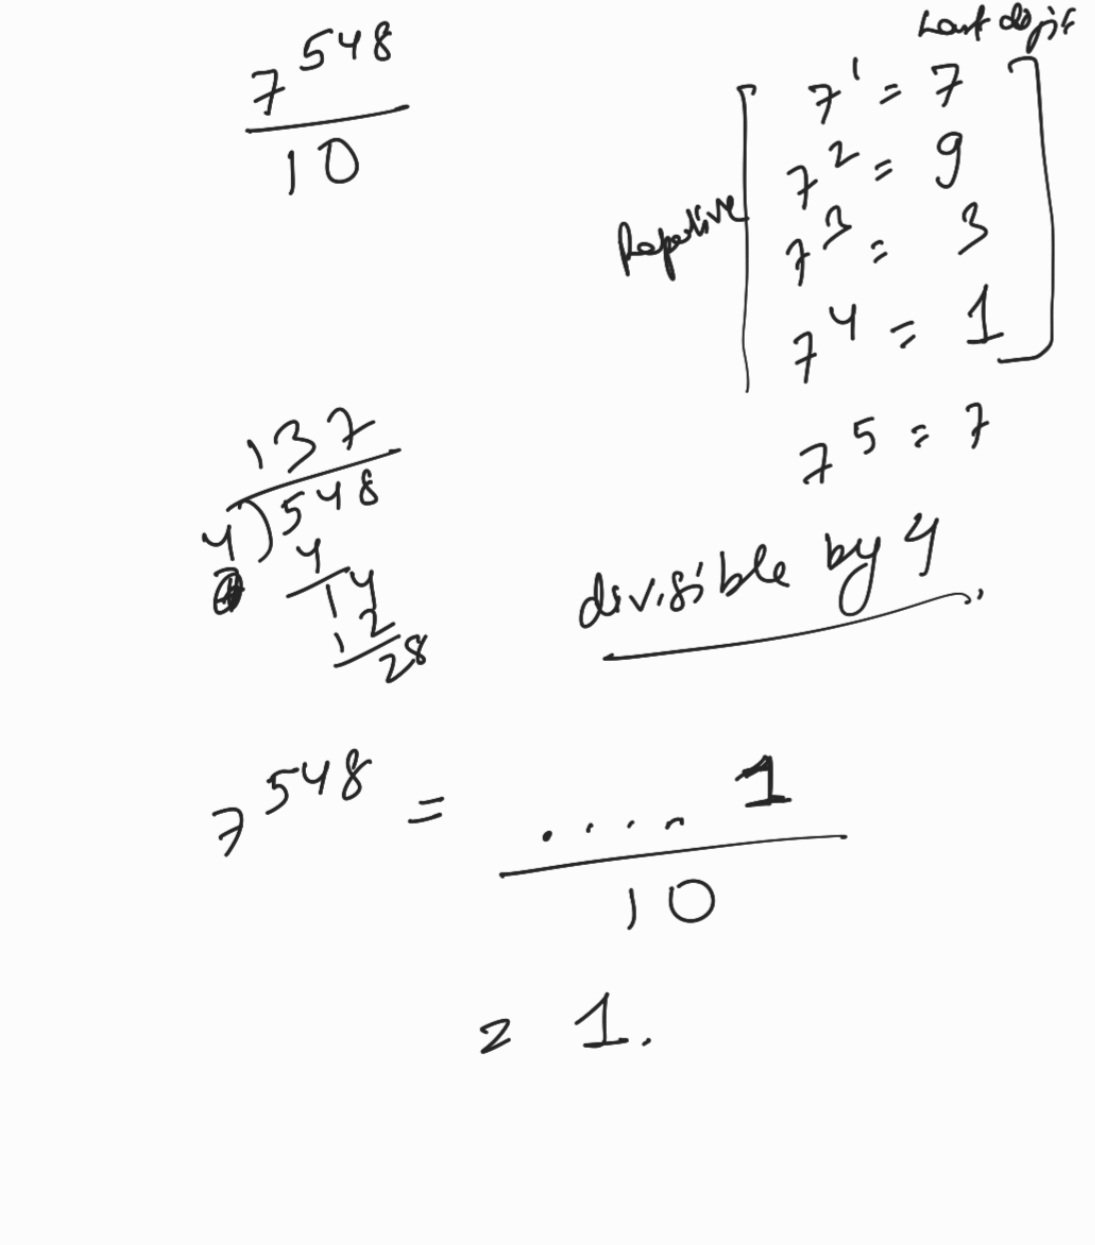 7^548
10
Last digit
7^1 = 7
7^2 = 9
7^3 = 3
7^4 = 1
7^5 = 7
137
4)548
4
14
12
28
divisible by 4
7^548 = .... 1
10
= 1.